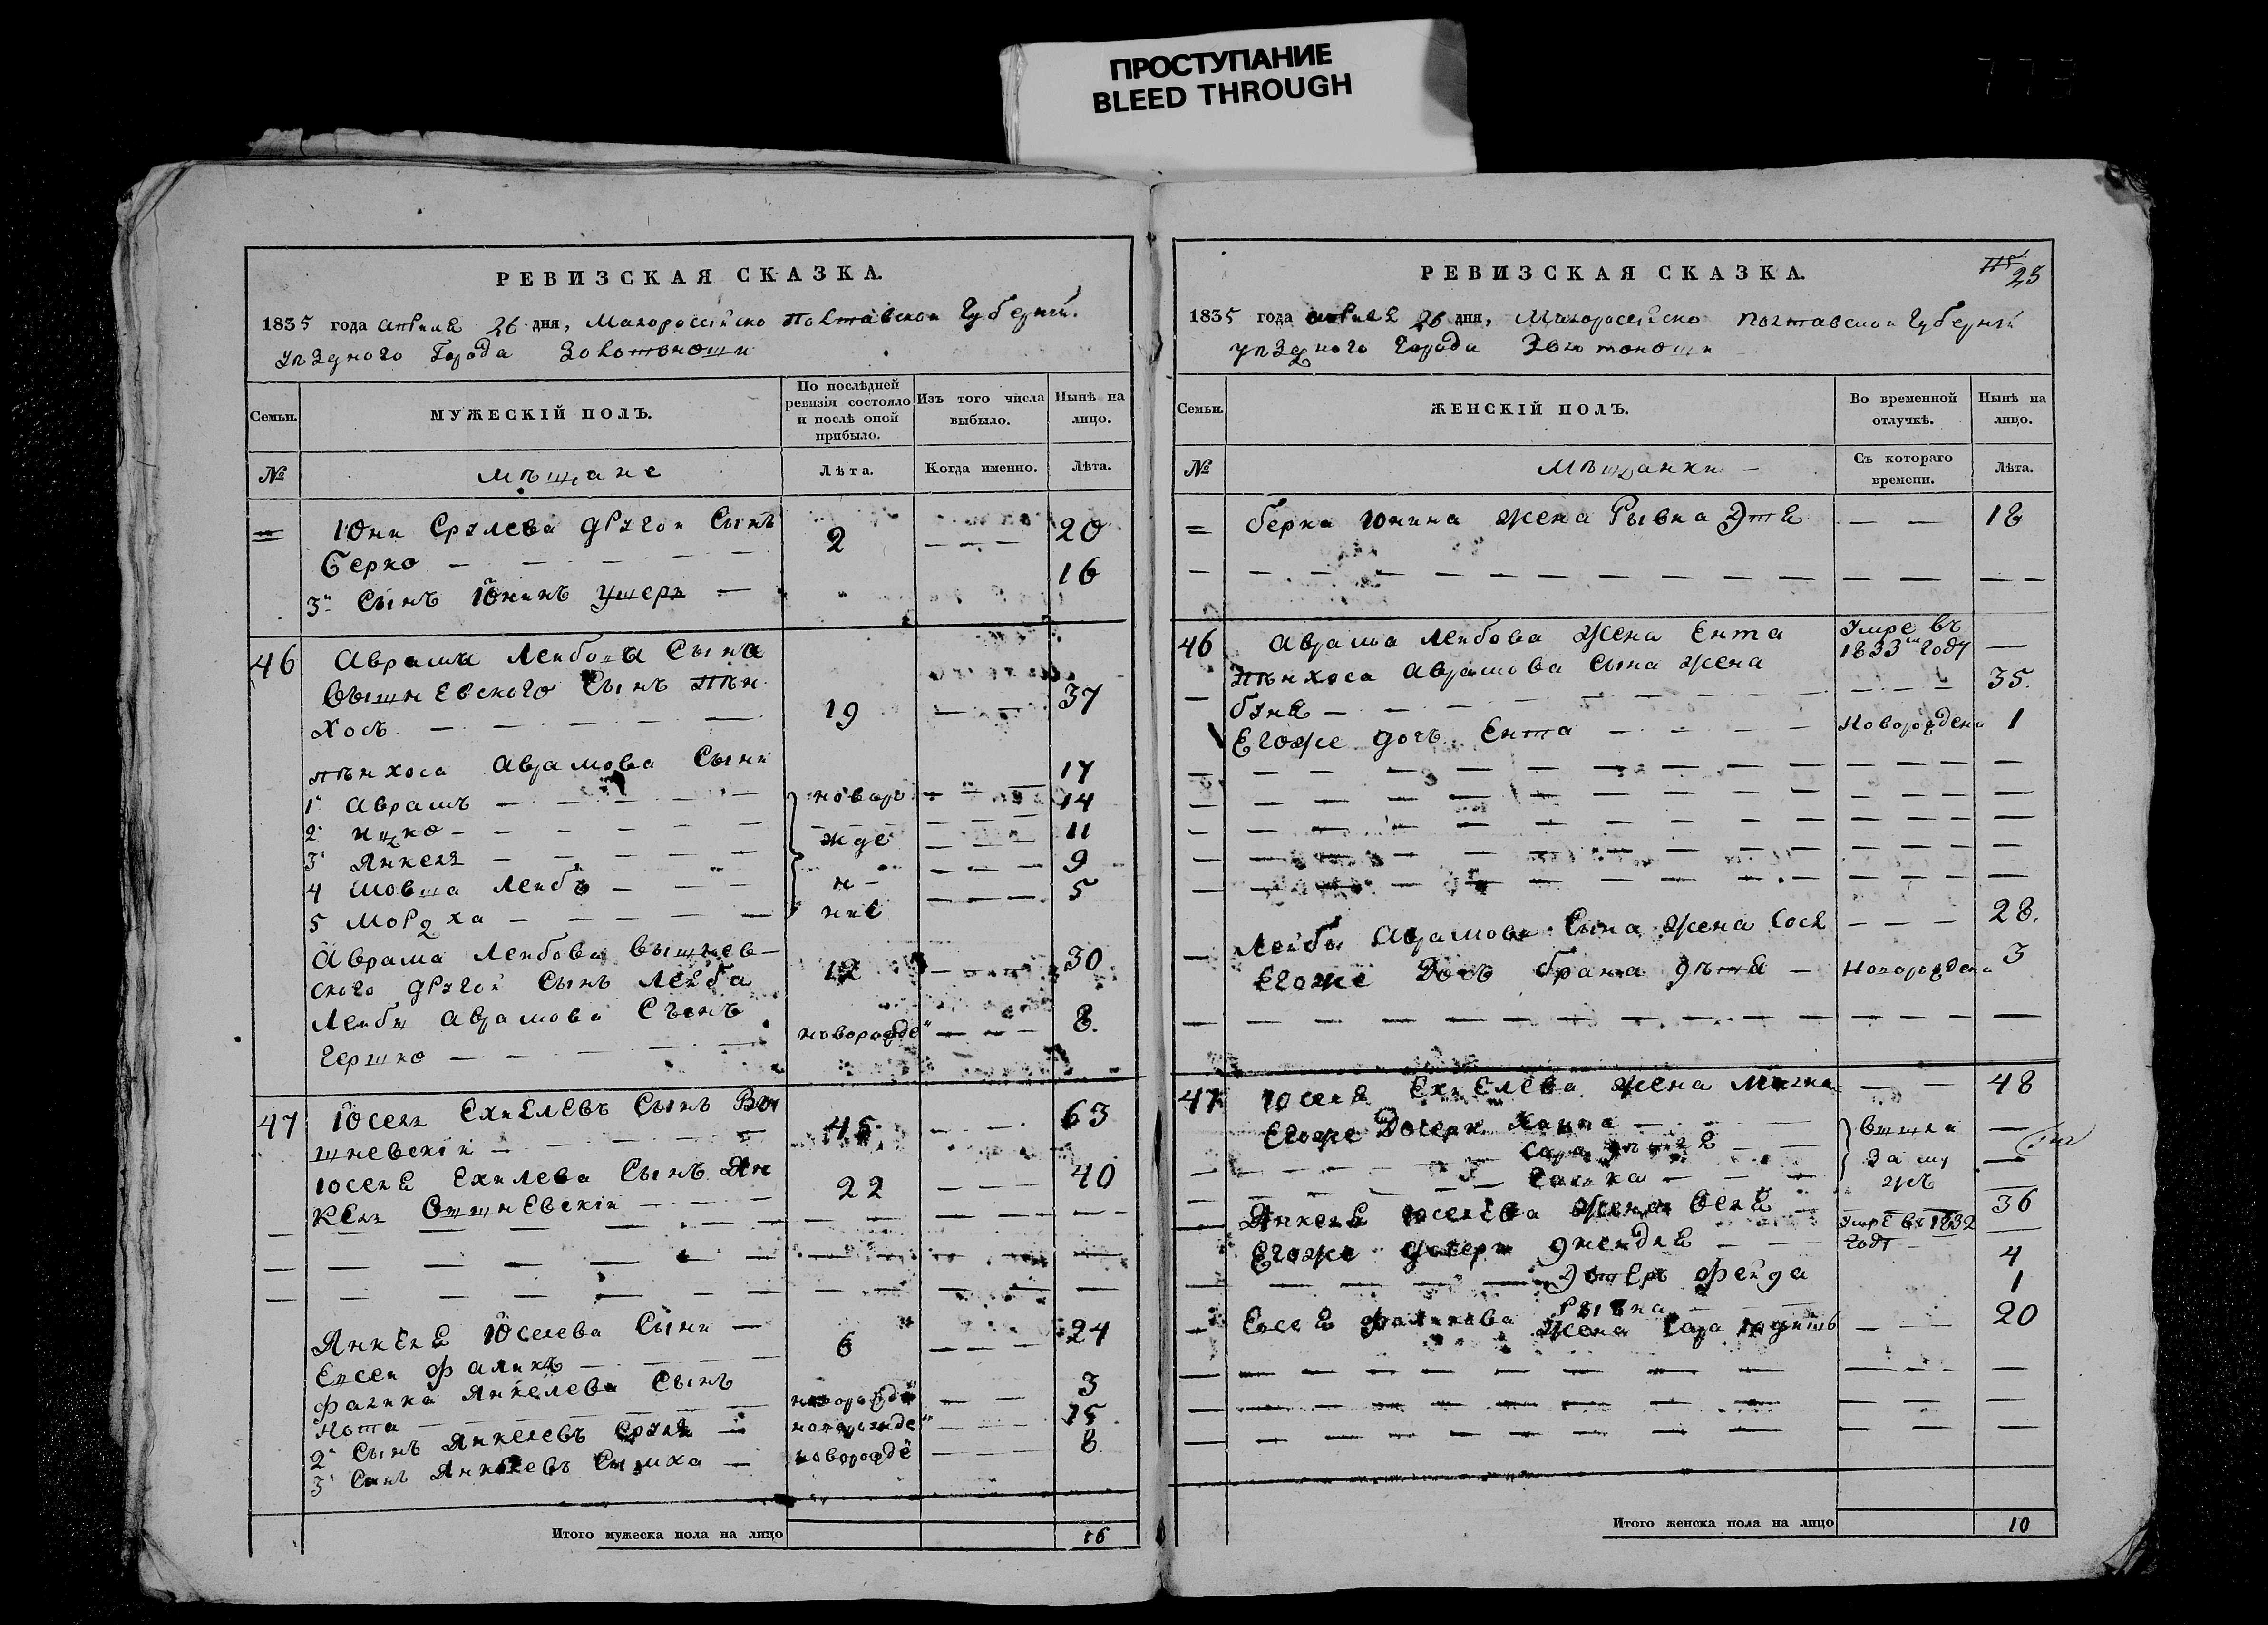 ПРОСТУПАНИЕ
BLEED THROUGH
РЕВИЗСКАЯ СКАЗКА.
1835 года апреля 26 дня, Малоросейско Полтавской Губернии.
уѣздного Города Золотоноши
Семьи. МУЖЕСКІЙ ПОЛЪ. По послѣдней ревизіи состояло и послѣ оной прибыло. Изъ того числа выбыло. Нынѣ на лицо.
№ мѣщане Лѣта. Когда именно. Лѣта.
= Юни Срулева другой Сынъ
Берко — 2 — 20
3й Сынъ Юнинъ умеръ — 16
46 Аврама Лейбова Сына
Вышневского Сынъ Пѣн
хосъ — 19 — 37
пѣнхоса Аврамова Сыни
1й Аврамъ — новоро — 17
2й Ицко — — 14
3й Янкель — жде — 11
4 Шовша Лейбъ — н — 9
5 Мордха — ніе — 5
Аврама Лейбова Вышнев-
ского другой Сынъ Лейба 12 — 30
Лейби Аврамова Сынъ
Гершко — новорожде — 8.
47 Юсель Ехиелевъ Сынъ Вы
шневскій — 45 — 63
Юселя Ехилева Сынъ Ян
кель Вышневскій — 22 — 40
Янкеля Юселева Сыни —
Евсей Фаликъ — 6 — 24
Фалика Янкелева Сынъ
Нота — новорожде — 3
2й Сынъ Янкелевъ Сруль — новорожде — 15
3й Сынъ Янкелевъ Симха — новорожде — 8
Итого мужеска пола на лицо 16
115 25
РЕВИЗСКАЯ СКАЗКА.
1835 года апреля 26 дня, Малоросейско Полтавской Губерніи
уѣздного Города Золотоноши
Семьи. ЖЕНСКІЙ ПОЛЪ. Во временной отлучкѣ. Нынѣ на лицо.
№ Мѣщанки — Съ котораго времени. Лѣта.
= Берка Юнина жена Рывка Этля — — 18
46 Аврама Лейбова жена Ента Умре въ 1833м году —
пѣнхоса Аврамова Сына жена
Буня — 35.
Егоже дочъ Ента — Новорождена 1
Лейбы Аврамова Сына жена Сося — — — 28.
Егоже Дочъ Брана — Новорождена 3
47 Юселя Ехиелева жена — — 48
Егоже Дочери Ханна — Вышли —
Сара — За му —
— жъ —
Янкеля Юселева жена Бейля — 36
Егоже дочери — Умре въ 1832 году —
Эстеръ Фейда 4
Рывка — 1
Евсея Фаликова жена Сара — — 20
Итого женска пола на лицо 10